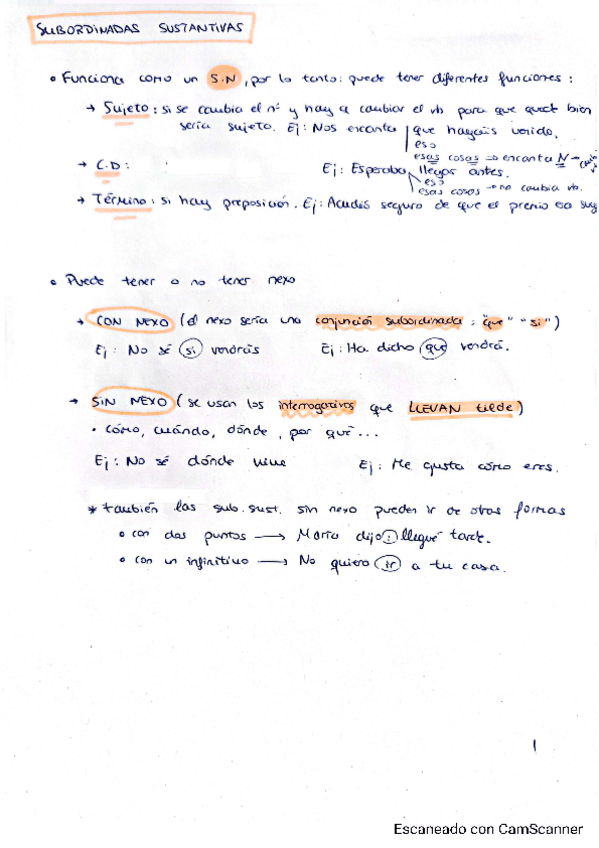 SUBORDINADAS SUSTANTIVAS
• Funciona como un S.N, por lo tanto: puede tener diferentes funciones:
→ Sujeto: si se cambia el nº y hay q cambiar el vb para que quede bien
sería sujeto. Ej: Nos encanta que hayáis venido.
eso
esas cosas → encantaN →
→ C.D: Ej: Esperaba llegar antes.
eso
esas cosas → no cambia vb.
→ Término: si hay preposición. Ej: Acudís seguro de que el premio es
• Puede tener o no tener nexo
→ CON NEXO (el nexo sería una conjunción subordinada: "que" "si")
Ej: No sé si vendrás Ej: Ha dicho que vendrá.
→ SIN NEXO (se usan los interrogativos que LLEVAN tilde)
• cómo, cuándo, dónde, por qué...
Ej: No sé dónde vive Ej: Me gusta cómo eres.
* también las sub. sust. sin nexo pueden ir de otras formas
• con dos puntos → María dijo: llegué tarde.
• con un infinitivo → No quiero ir a tu casa.
1
Escaneado con CamScanner